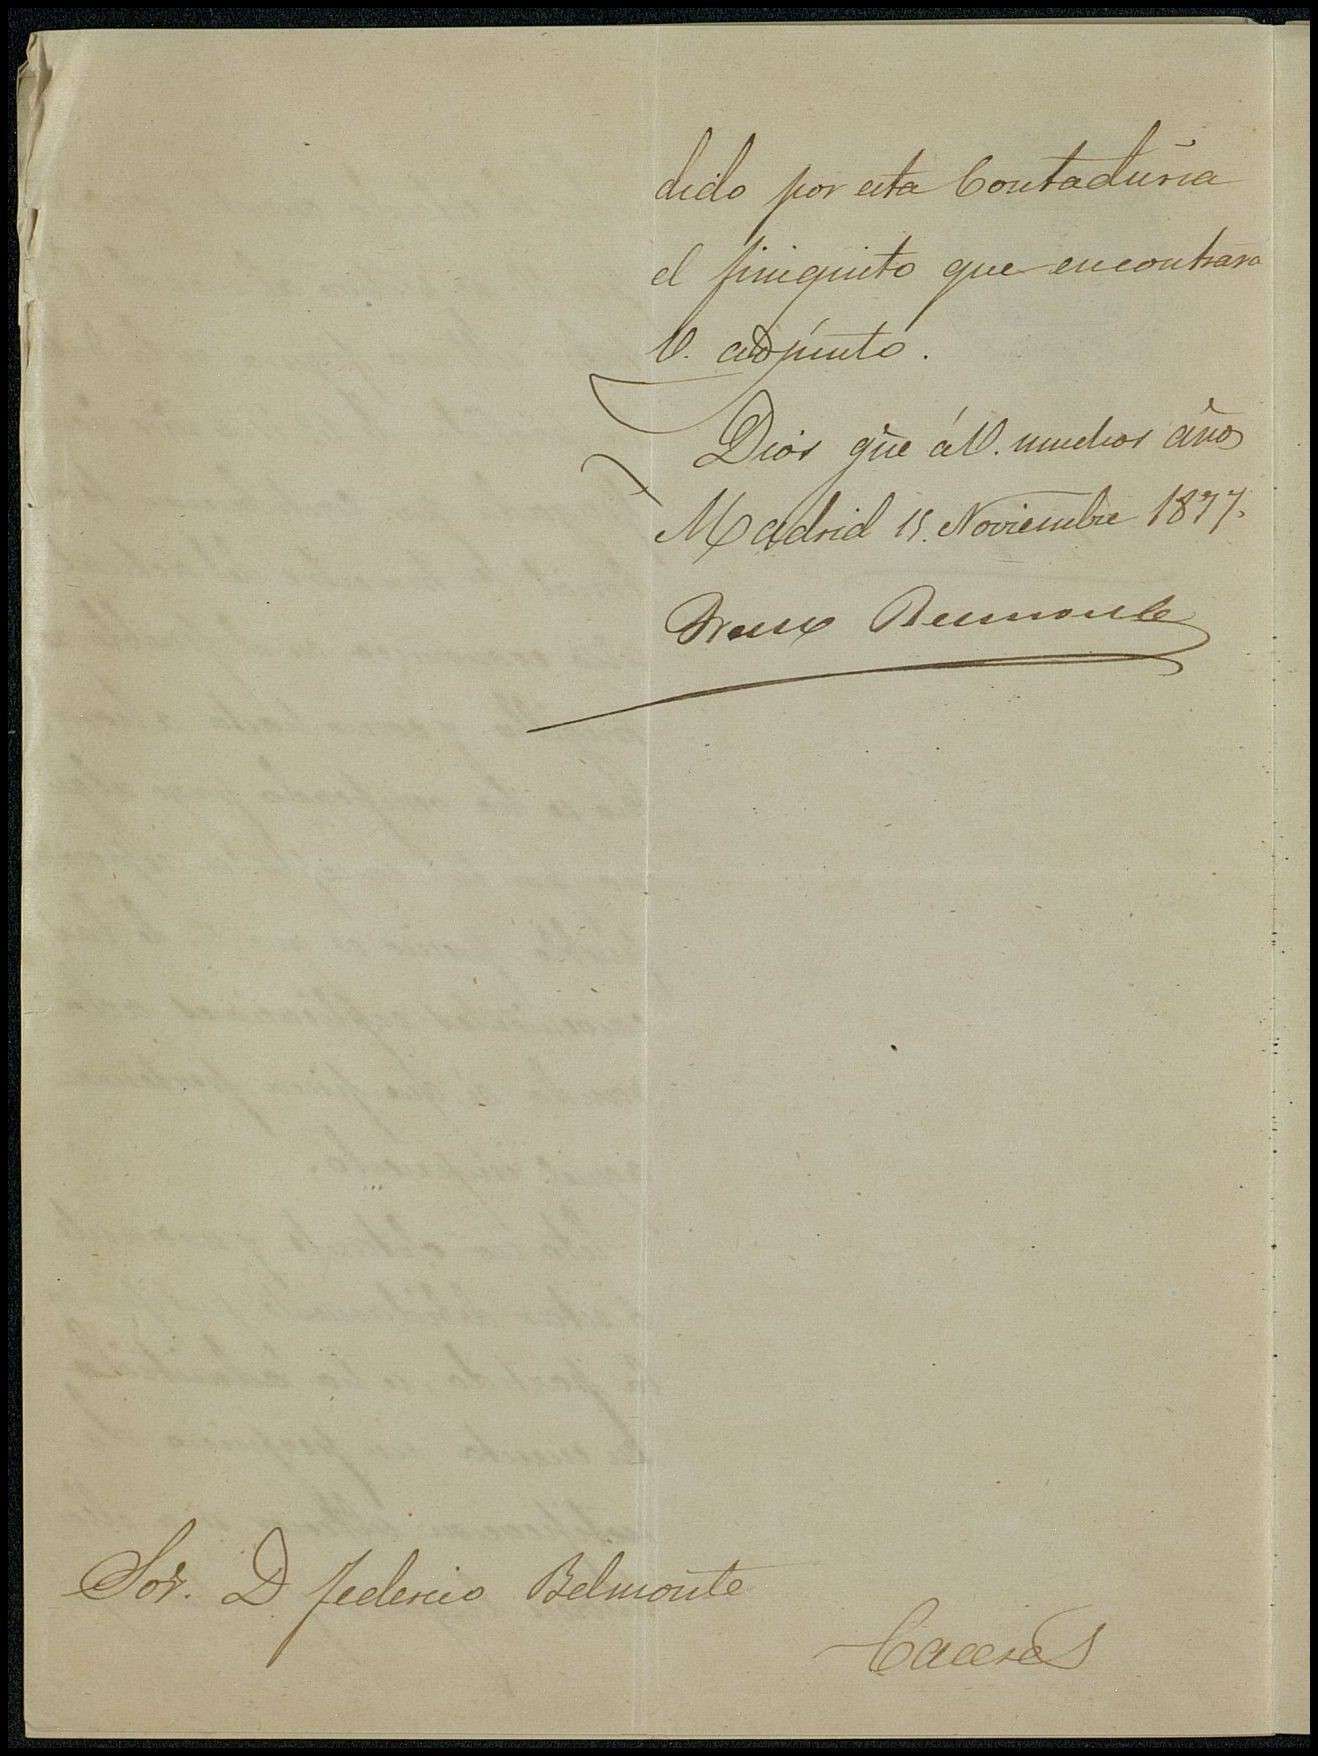 dido por esta Contaduria
el finiquito que encontrara
V. adjunto.
Dios gũe á V. muchos años
Madrid 15. Noviembre 1877.
Sor. D Federico Belmonte
Caceres